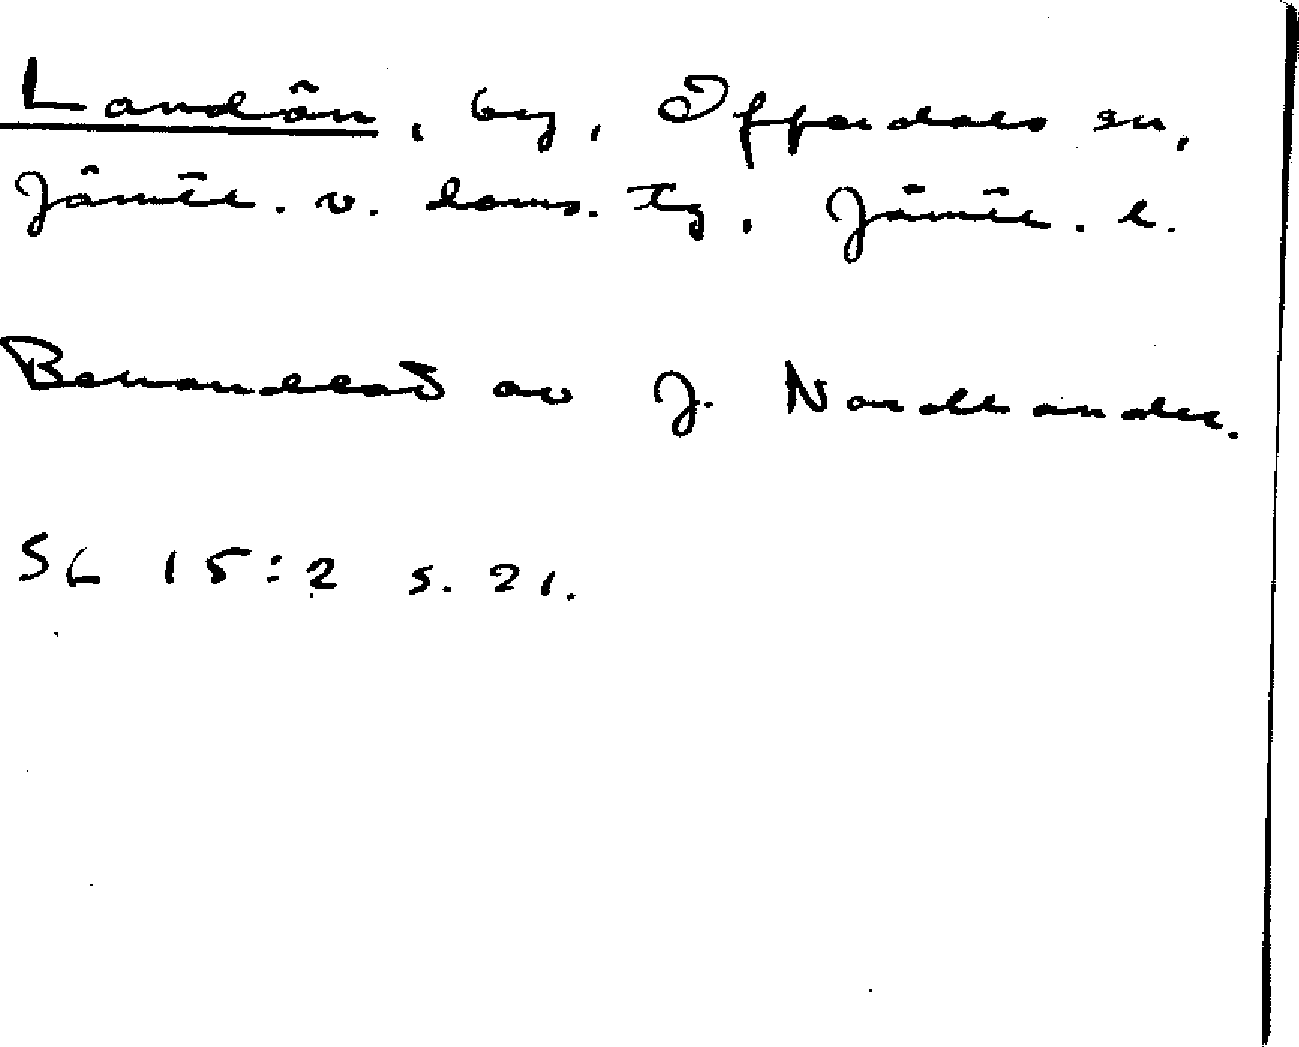 Landön, by, Offerdals sn,
Jämtl. v. doms. tg, Jämtl. l.
Behandlad av J. Nordlander.
SL 15:2 s. 21.